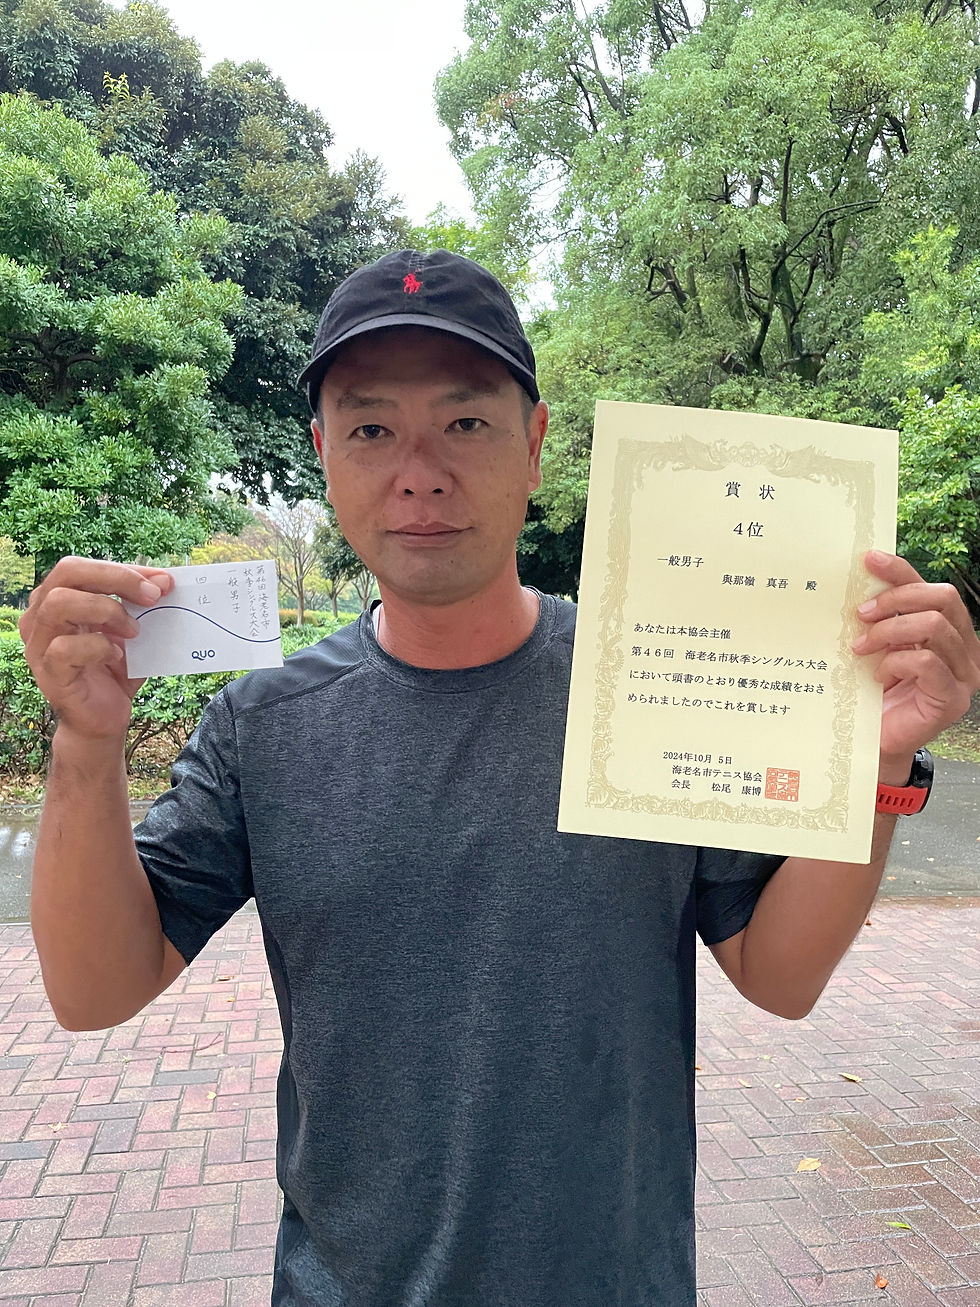 第46回 海老名市
秋季シングルス大会
一般男子
四位
QUO
賞 状
4位
一般男子
與那嶺 真吾 殿
あなたは本協会主催
第46回 海老名市秋季シングルス大会
において頭書のとおり優秀な成績をおさ
められましたのでこれを賞します
2024年10月 5日
海老名市テニス協会
会長 松尾 康博